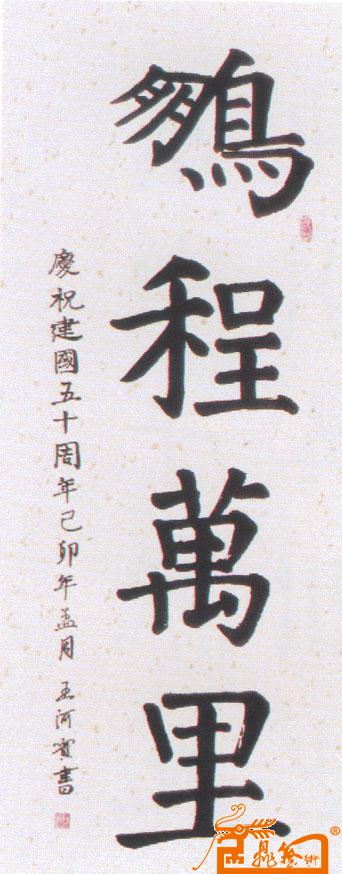 鵬程萬里
慶祝建國五十周年己卯年孟月 王河賓書